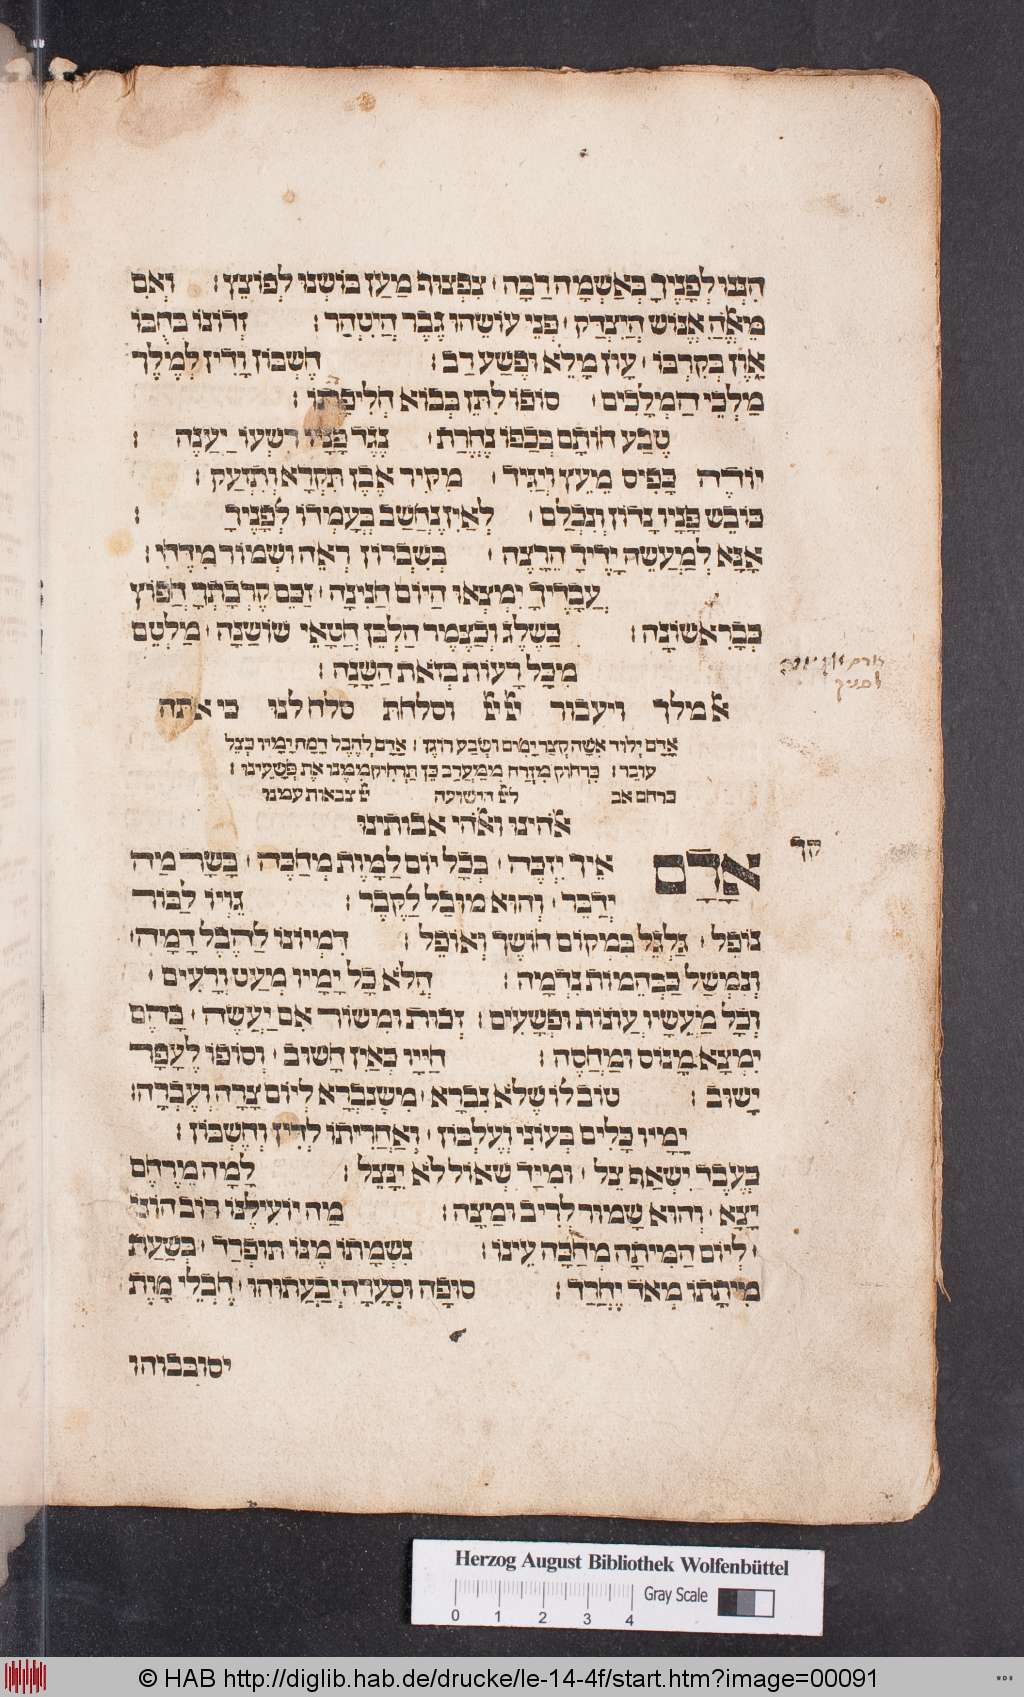 הִנְנוּ לְפָנֶיךָ בְּאַשְׁמָה רַבָּה · צִפְצוּף מַעַז בּוֹשְׁנוּ לְפוֹצֵץ : וְאִם
מֵאֱלֹהַּ אֱנוֹשׁ הֲיִצְדַּק · פְּנֵי עוֹשֵׂהוּ גֶבֶר הֲיִטְהָר : זְדוֹנוֹ בְּחֻבּוֹ
אָוֶן בְּקִרְבּוֹ · עָוֹן מָלֵא וּפֶשַׁע רַב : חֶשְׁבּוֹן וָדִין לְמֶלֶךְ
מַלְכֵי הַמְלָכִים · סוֹפוֹ לִתֵּן בְּבוֹא חֲלִיפָתוֹ :
טֶבַע חוֹתָם בְּכַפּוֹ נֶחֱרַת · נֶגֶד פָּנָיו רִשְׁעוֹ יַעֲנֶה :
יוֹרֶה כָּפִיס מֵעֵץ וְיַגִּיד · מִקִּיר אֶבֶן תִּקְרָא וְתִזְעַק :
כּוֹבֵשׁ פָּנָיו נָדוֹן וְנִכְלָם · לְאַיִן נֶחְשַׁב בְּעָמְדוֹ לְפָנֶיךָ :
אָנָּא לְמַעֲשֵׂה יָדֶיךָ הֵרָצֶה · בְּשִׁבְרוֹן רְאֵה וּשְׁמוֹר מִדֶּחִי :
עֲבָדֶיךָ יִמְצְאוּ הַיּוֹם חֲנִינָה · זַכֵּם קִרְבָתְךָ הַפּוֹץ
כְּבָרִאשׁוֹנָה : כַּשֶּׁלֶג וְכַצֶּמֶר הַלְבֵּן חֲטָאֵי שׁוֹשַׁנָּה · מַלְּטֵם
מִכָּל רָעוֹת בְּזֹאת הַשָּׁנָה :
א מלך ויעבור יי יי וסלחת סלח לנו כי אתה
אָדָם יְלוּד אִשָּׁה קְצַר יָמִים וּשְׂבַע רוֹגֶז : אָדָם לְהֶבֶל דָּמָה יָמָיו כְּצֵל
עוֹבֵר : כִּרְחוֹק מִזְרָח מִמַּעֲרָב כֵּן תַּרְחִיק מִמֶּנּוּ אֶת פְּשָׁעֵינוּ :
כרחם אב ליי הישועה יי צבאות עמנו
אלהינו ואלהי אבותינו
קך
אָדָם אֵיךְ יִזְכֶּה · בְּכָל יוֹם לַמָּוֶת מְחַכֶּה · בָּשָׂר מַה
יְּדַבֵּר · וְהוּא מוּבָל לַקֶּבֶר : גֵּוְיוֹ לַבּוֹר
נוֹפֵל · גַּלְגַּל בִּמְקוֹם חוֹשֶׁךְ וְאוֹפֶל : דִּמְיוֹנוֹ לַהֶבֶל דָּמָה ·
וְנִמְשַׁל כַּבְּהֵמוֹת נִדְמָה : הֲלֹא כָּל יָמָיו מְעַט וְרָעִים ·
וְכָל מַעֲשָׂיו עֲוֹנוֹת וּפְשָׁעִים : זְכוּת וּמִישׁוֹר אִם יַעֲשֶׂה · בָּהֶם
יִמְצָא מָנוֹס וּמַחֲסֶה : חַיָּיו כְּאַיִן חָשׁוּב · וְסוֹפוֹ לֶעָפָר
יָשׁוּב : טוֹב לוֹ שֶׁלֹּא נִבְרָא · מִשֶּׁנִּבְרָא לְיוֹם צָרָה וְעֶבְרָה :
יָמָיו כָּלִים בְּעוֹנִי וְעֶלְבּוֹן · וְאַחֲרִיתוֹ לְדִין וְחֶשְׁבּוֹן :
כְּעֶבֶד יִשְׁאַף צֵל · וּמִיַּד שְׁאוֹל לֹא יִנָּצֵל : לָמָּה מֵרֶחֶם
יָצָא · וְהוּא שָׁמוּר לְרִיב וּמַצָּה : מַה יּוֹעִילֶנּוּ רוֹב הוֹנוֹ
· לְיוֹם הַמִּיתָה מְחַכֶּה עֵינוֹ : נִשְׁמָתוֹ מֶנּוּ תוּפְרַד · בִּשְׁעַת
מִיתָתוֹ מְאֹד יֶחֱרַד : סוּפָה וּסְעָרָה יְבַעֲתוּהוּ · חֶבְלֵי מָוֶת
יסובבוהו
Herzog August Bibliothek Wolfenbüttel
Gray Scale
0 1 2 3 4
© HAB http://diglib.hab.de/drucke/le-14-4f/start.htm?image=00091